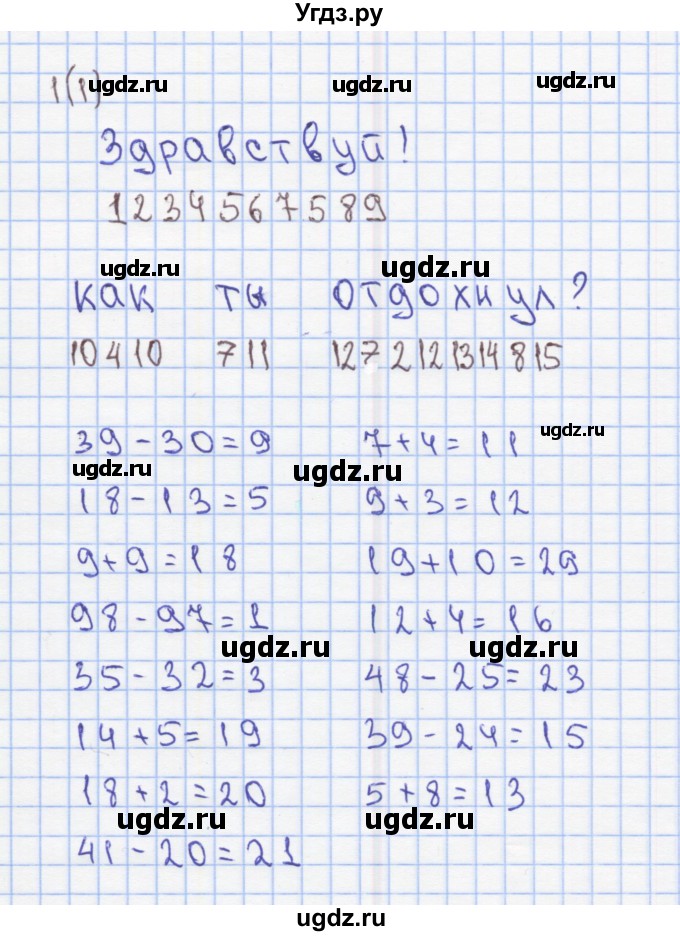 Угдз.ру
1(1) ugdz.ru
Здравствуй!
1 2 3 4 5 6 7 5 8 9
ugdz.ru ugdz.ru
как ты отдохнул?
10 4 10 7 11 12 7 2 12 13 14 8 15
39 - 30 = 9 7 + 4 = 11 ugdz.ru
ugdz.ru ugdz.ru
18 - 13 = 5 9 + 3 = 12
9 + 9 = 18 19 + 10 = 29
98 - 97 = 1 12 + 4 = 16
ugdz.ru ugdz.ru
35 - 32 = 3 48 - 25 = 23
14 + 5 = 19 39 - 24 = 15
18 + 2 = 20 5 + 8 = 13
ugdz.ru ugdz.ru
41 - 20 = 21
ugdz.ru